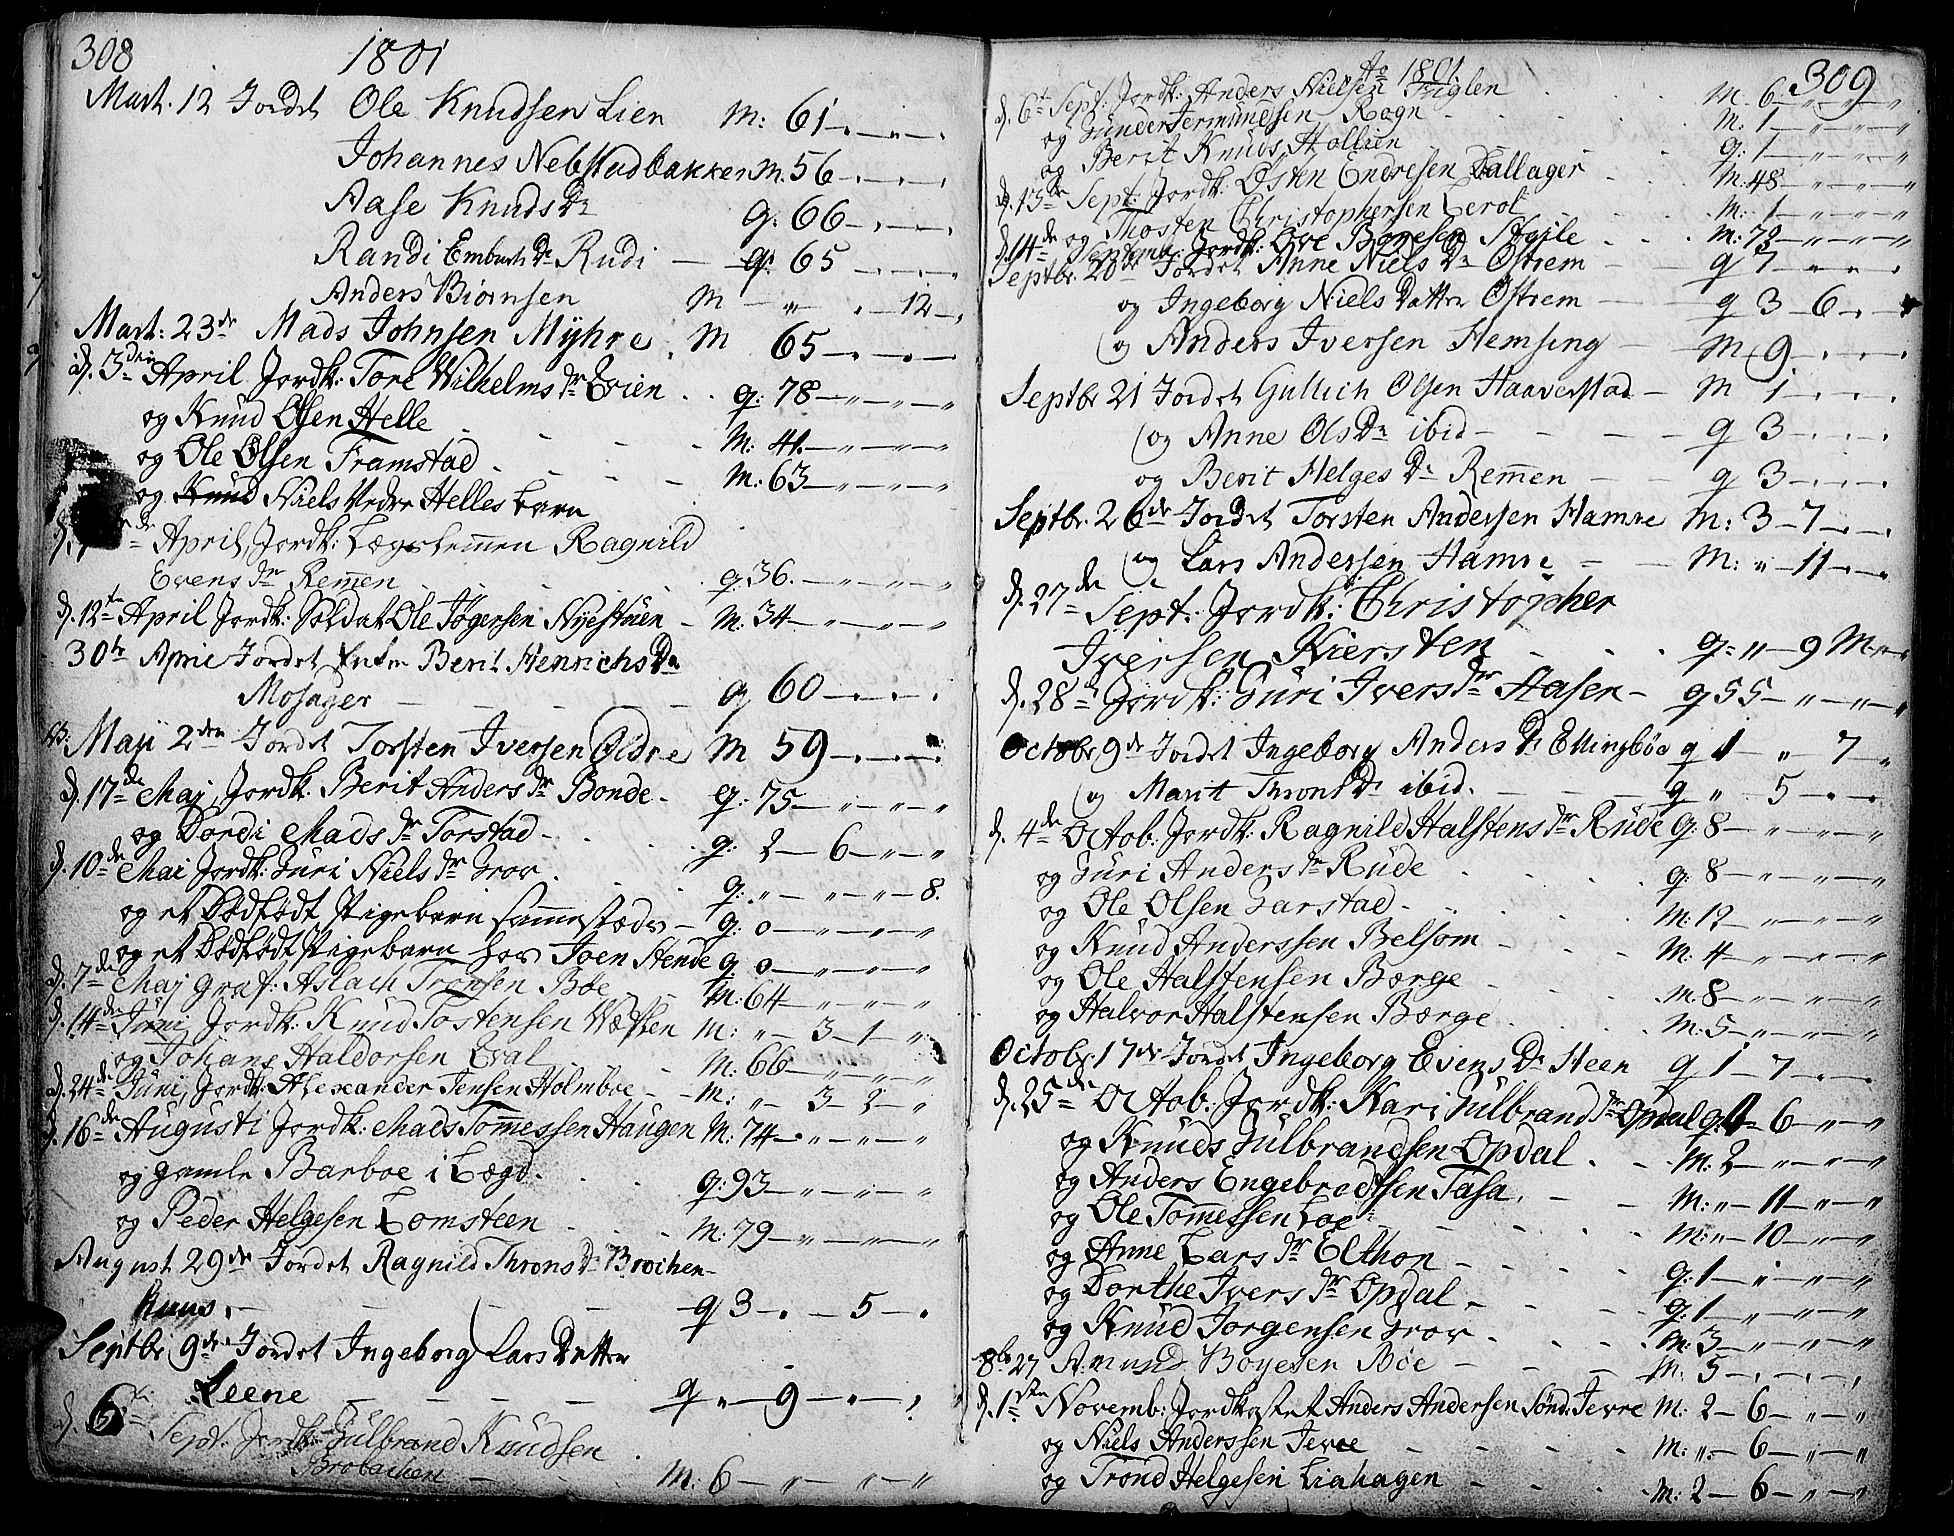 308 1801
Mart. 12 Jordet Ole Knudsen Lien M: 61 -.-"-.
Johannes Nebstadbakken M. 56 -.-.-.
Aase Knuds Dr q. 66 -.-.-.
Randi Embrets Dr Rudi - q: 65 -.-.-.
Anders Biørnsen M - " . - 12 -.
Mart: 23de Mads Johnsen Myhre. M 65 -.-.-
d. 3die April Jordk: Tore Wilhelms dr Evien . . q: 78 -"-"-"
og Knud Olsen Helle - - - M: 41. -"-"-"
og Ole Olsen Framstad. - - - M: 63 -"-"-"
og Knud Niels Nedre Helles barn
de April, Jordk: Lægslemen Ragnild
Evens dr Remen - . . q: 36. -"-"-"
d. 12te April Jordk: Soldat Ole Jøgersen Nÿestuen - M: 34 -"-"-"
30te April Jordet Berit Henrichs Dr
Mosager - - - - q 60 -.-.-.
Maji 2den Jordet Torsten Iversen Øldre M 59 -.-.-.
d. 17de Maj, Jordk: Berit Anders dr Bonde - q: 75 -"-"-"
og Dordi Mads dr Torstad - . . . q: 2 - 6 -"-"
d. 10de Mai Jordk: Guri Niels dr Grov . . . q: " - "-"- 8.
og et dødfødt Pigebarn sammestæds - q: 0 -"-"-"
og et dødfødt Pigebarn hos Joen Stende q. 0 -"-"-"
d. 7de Maj Graf: Aslach Tronsen Bøe - - M: 64 -"-"-"
d. 14de Juni, Jordk: Knud Tostensen Wæsten M: " - 3 - 1 - "
og Johans Haldorsen Qval - - M: 66 -"-"-"
d. 24de Juni, Jordk: Alexander Jensen Holmboe - - M: " - 3 - 2 - "
d. 16de Augusti Jordk: Mads Tomessen Haugen M: 74 -"-"-"
og gamle Barboe i Lægd. . . . q: 93 -"-"-"
og Peder Helgesen Lomsteen . . M: 79 -"-"-"
August 29de Jordet Ragnild Throns Dr Brochen-
- - - q 3 -. - 5 -.
Septbr 9de Jordet Ingeborg Lars Datter
Leene - - - - q " - 9 -"-.
d. 6te Sept. Jordk: Gulbrand Knudsen
Brobachen - . . M: 6 -"-"-"
Ao 1801. 309
d. 6te Sept: Jordk: Anders Nielsen Fuglen . . . M. 6 -"-"-"
og Gunder Germundsen Rogn - . . . M: 1 -"-"-"
og Berit Knuds Hallien . . . q: 1 -"-"-"
d. 13de Sept: Jordk: Østen Endresen Dallager . . M: 48 -"-"-"
og Thosten Christophersen Qerol - . . M: 1 -"-"-"
d. 14de Septemb: Jordk: Ove Boyesen Stafle . . . M: 73 -"-"-"
Septbr 20de Jordet Anne Niels Dr Østrem - - q 7 -"-"-.
og Ingeborg Niels Datter Østrem - - q 3 - 6 -.-.
og Anders Iversen Hemsing - M 9 -.-.-.
Septbr 21 Jordet Gullich Olsen Haaverstad - M 1 -.-.-.
og Anne Ols Dr ibid - - - - q 3 -.-.-.
og Berit Helges Dr Remen - - q 3 -.-.-.
Septbr. 26de Jordet Torsten Andersen Hamre M: 3 - 7 -.-.
og Lars Andersen Hamre - - M: " - 11 -.-.
d. 27de Sept. Jordk: Christopher
Iversen Kiersten - . . . q: " - 9 M.-"-.
d. 28de Jordk: Guri Ivers dr Aasen - q 55 -"-"-"
Octobr 9de Jordet Ingeborg Anders Dr Ellingbøe q 1 " 7 -.
og Marit Throns Dr ibid. - - - q " . 5 -.-.
d. 4de Octob: Jordk: Ragnild Halstens dr Rude q: 8 -"-"-"
og Guri Anders dr Rude - - - q: 8 -"-"-"
og Ole Olsen Garstad - . . . M: 12 -"-"-"
og Knud Anderssen Belsom - - - M: 4 -"-"-"
og Ole Halstensen Børge . . . M. 8 -"-"-"
og Halvor Halstensen Børge . . . M: 5 -"-"-"
Octobr. 17de Jordet Ingeborg Evens Dr Steen q 1 - 7 -.-.
d. 25de Octob: Jordk: Kari Gulbrands dr Opdal q: 4 - 6 -"-"
og Knuds Gulbrandsen Opdal . - M: 2 -"-"-"
og Anders Engebredtsen Tasa. - M: " - 11 -"-"
og Ole Tomessen Loe - - - - M: " - 10 -"-"
og Anne Lars dr Elthon - . . . q: 1 -"-"-"
og Dorthe Ivers dr Opdal - . . . q: 1 -"-"-"
og Knud Jorgensen Grov . . . M: 3 -"-"-"
8br 27 Amund Boyesen Bøe - - - M: 5 -.-.-.
d. 1ste Novemb: Jordkastet Anders Andersen Sønd: Jevre M: 2 - 6 -"-"
og Niels Anderssen Jevre - - - M: " - 6 -"-"
og Trond Helgesen Liahagen - . . M: 2 - 6 -"-"